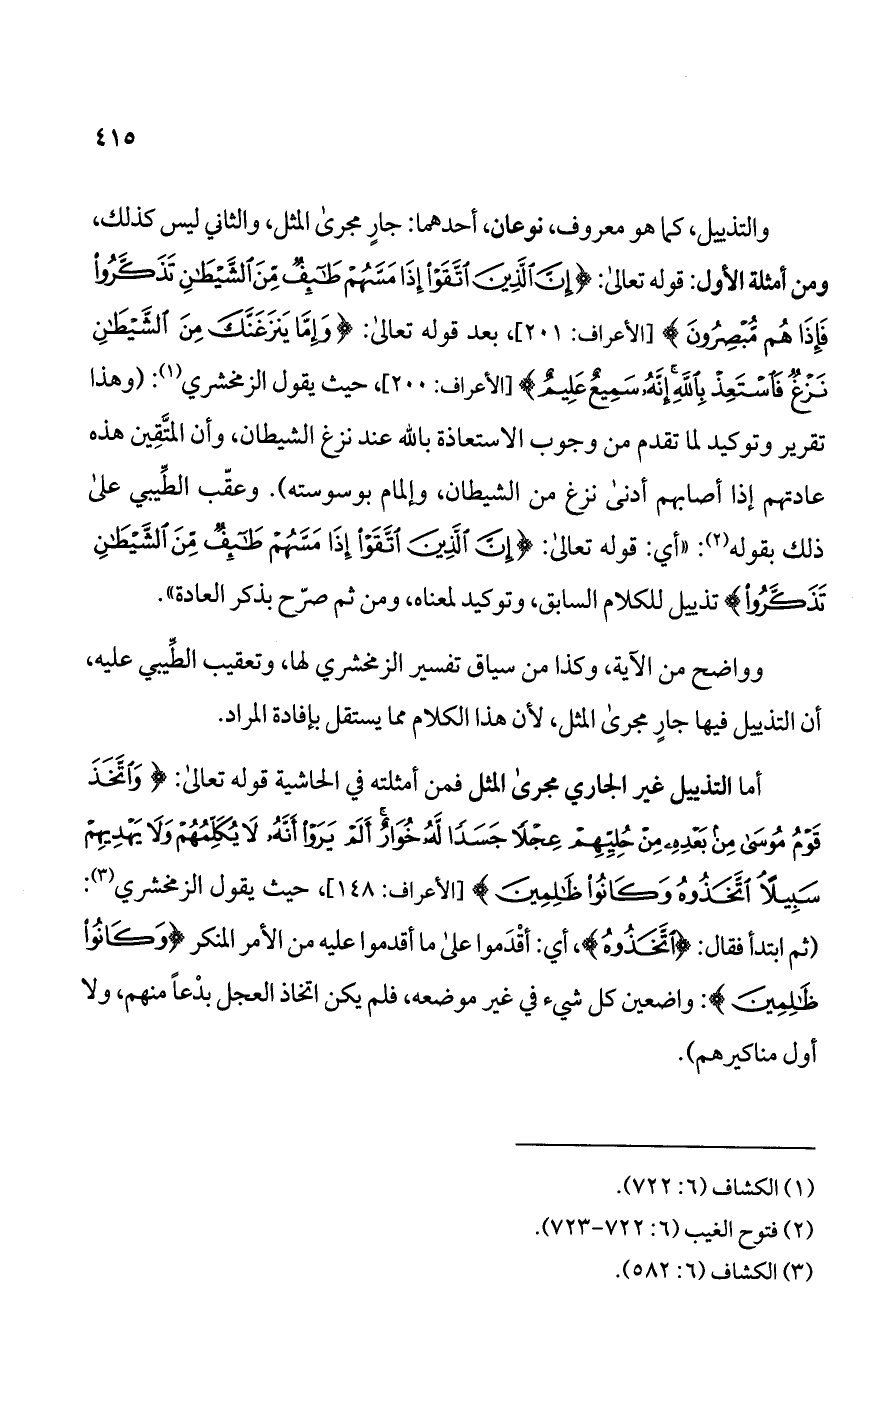 ٤١٥
والتذييل، كما هو معروف، نوعان، أحدهما: جارٍ مجرىٰ المثل، والثاني ليس كذلك،
ومن أمثلة الأول: قوله تعالىٰ: ﴿إِنَّ ٱلَّذِينَ ٱتَّقَوْا۟ إِذَا مَسَّهُمْ طَٰٓئِفٌ مِّنَ ٱلشَّيْطَٰنِ تَذَكَّرُوا۟
فَإِذَا هُم مُّبْصِرُونَ﴾ [الأعراف: ٢٠١]، بعد قوله تعالىٰ: ﴿وَإِمَّا يَنزَغَنَّكَ مِنَ ٱلشَّيْطَٰنِ
نَزْغٌ فَٱسْتَعِذْ بِٱللَّهِ ۚ إِنَّهُۥ سَمِيعٌ عَلِيمٌ﴾ [الأعراف: ٢٠٠]، حيث يقول الزمخشري(١): (وهذا
تقرير وتوكيد لما تقدم من وجوب الاستعاذة بالله عند نزغ الشيطان، وأن المتَّقِين هذه
عادتهم إذا أصابهم أدنىٰ نزغ من الشيطان، وإلمام بوسوسته). وعقّب الطِّيبي علىٰ
ذلك بقوله(٢): «أي: قوله تعالىٰ: ﴿إِنَّ ٱلَّذِينَ ٱتَّقَوْا۟ إِذَا مَسَّهُمْ طَٰٓئِفٌ مِّنَ ٱلشَّيْطَٰنِ
تَذَكَّرُوا۟﴾ تذييل للكلام السابق، وتوكيد لمعناه، ومن ثم صرّح بذكر العادة».
وواضح من الآية، وكذا من سياق تفسير الزمخشري لها، وتعقيب الطِّيبي عليه،
أن التذييل فيها جارٍ مجرىٰ المثل، لأن هذا الكلام مما يستقل بإفادة المراد.
أما التذييل غير الجاري مجرىٰ المثل فمن أمثلته في الحاشية قوله تعالىٰ: ﴿وَٱتَّخَذَ
قَوْمُ مُوسَىٰ مِنۢ بَعْدِهِۦ مِنْ حُلِيِّهِمْ عِجْلًا جَسَدًا لَّهُۥ خُوَارٌ ۚ أَلَمْ يَرَوْا۟ أَنَّهُۥ لَا يُكَلِّمُهُمْ وَلَا يَهْدِيهِمْ
سَبِيلًا ۘ ٱتَّخَذُوهُ وَكَانُوا۟ ظَٰلِمِينَ﴾ [الأعراف: ١٤٨]، حيث يقول الزمخشري(٣):
(ثم ابتدأ فقال: ﴿ٱتَّخَذُوهُ﴾، أي: أقْدَموا علىٰ ما أقدموا عليه من الأمر المنكر ﴿وَكَانُوا۟
ظَٰلِمِينَ﴾: واضعين كل شيء في غير موضعه، فلم يكن اتخاذ العجل بدْعاً منهم، ولا
أول مناكيرهم).
(١) الكشاف (٦: ٧٢٢).
(٢) فتوح الغيب (٦: ٧٢٢-٧٢٣).
(٣) الكشاف (٦: ٥٨٢).